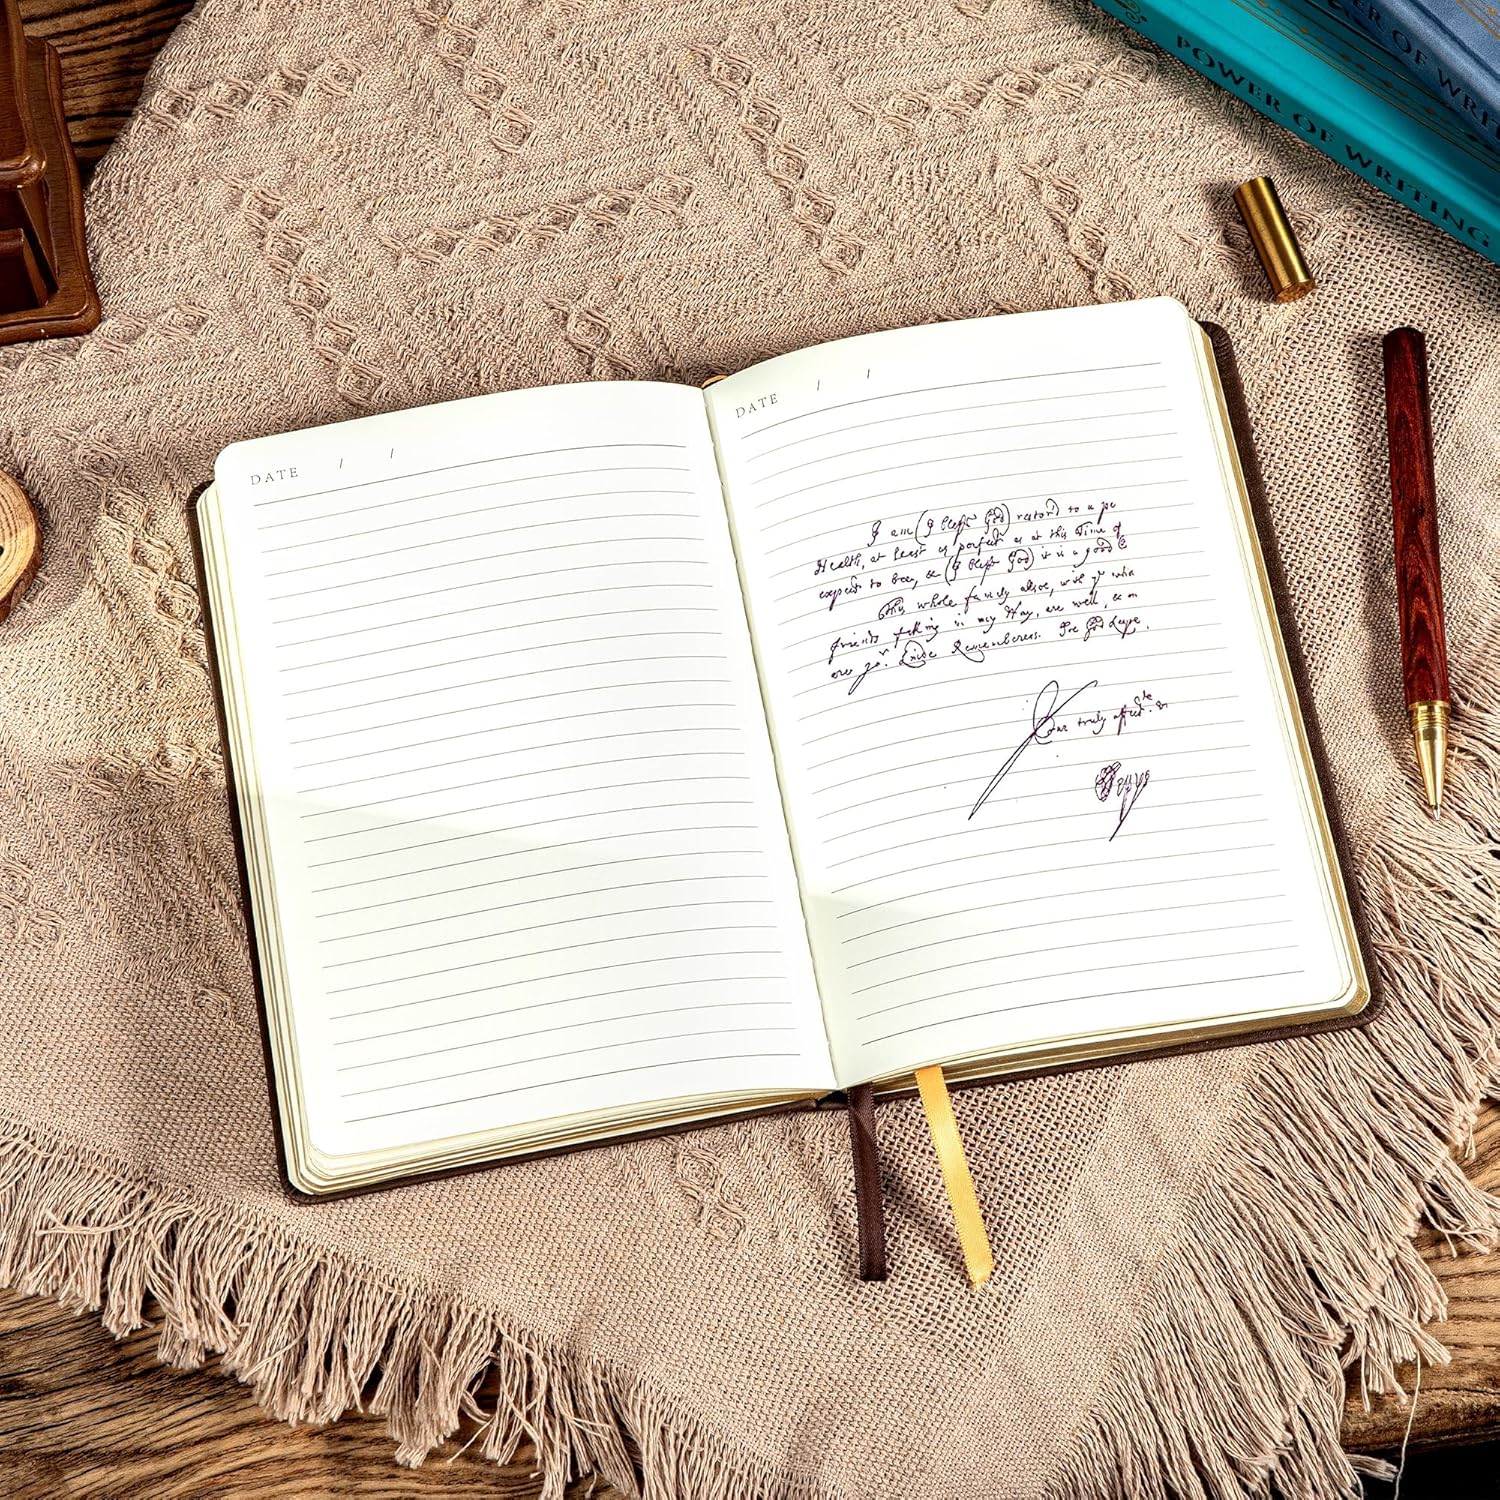 POWER OF WRITING
ER OF WRIT
DATE / /
DATE / /
I am (I bless God) restord to a pe
Health, at least as perfect as at this Time of
expect to bee, & (I bless God) it is a good
This whole family alsoe, with yr
friends in my Way, are well, &
are yor. Remembrers. God keepe
Your truly affecte.
SPepys